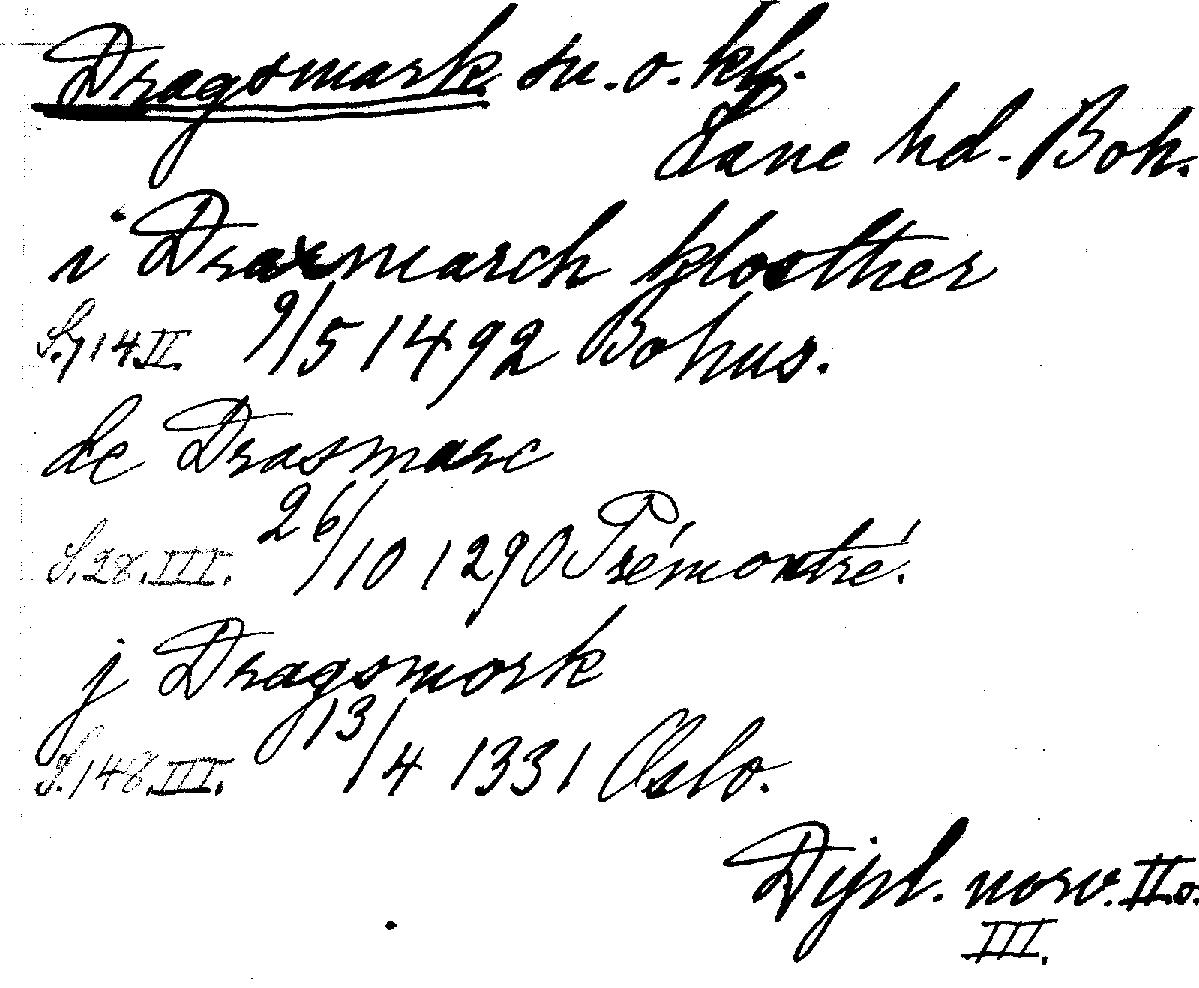 Dragsmark sn. o. kl.
Lane hd. Boh.
i Draxmarch klosther
9/5 1492 Bohus.
de Drasmarc
S. 28. III. 26/10 1290 Prémontré.
j Dragsmork
S. 148 III. 13/4 1331 Oslo.
Dipl. norv. II o.
III.